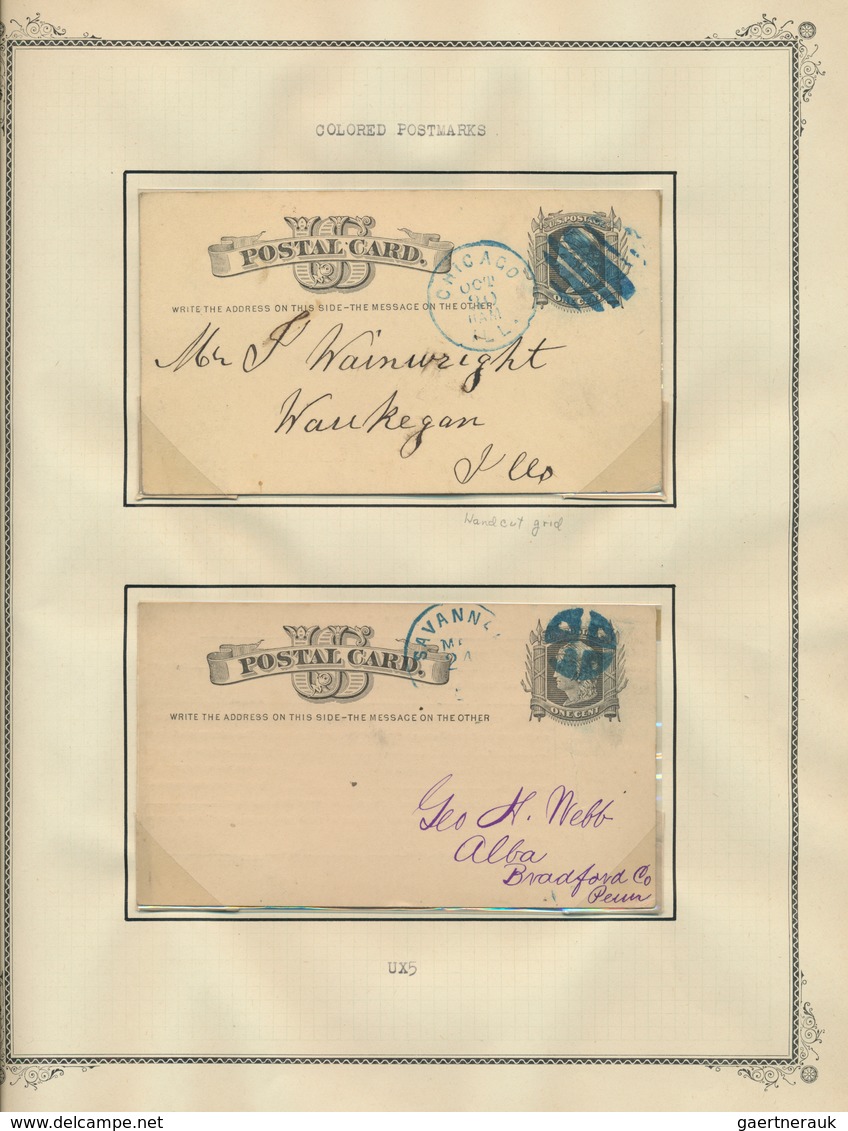 COLORED POSTMARKS
US
POSTAL CARD.
WRITE THE ADDRESS ON THIS SIDE-THE MESSAGE ON THE OTHER
CHICAGO
OCT
ILL.
U.S. POSTAGE
ONE CENT
Mr J Wainwright
Waukegan
Ills
Handcut grid
US
POSTAL CARD.
WRITE THE ADDRESS ON THIS SIDE-THE MESSAGE ON THE OTHER
SAVANN
ONE CENT
Geo H. Webb
Alba
Bradford Co
Penn
UX5
www.delcampe.net
gaertnerauk